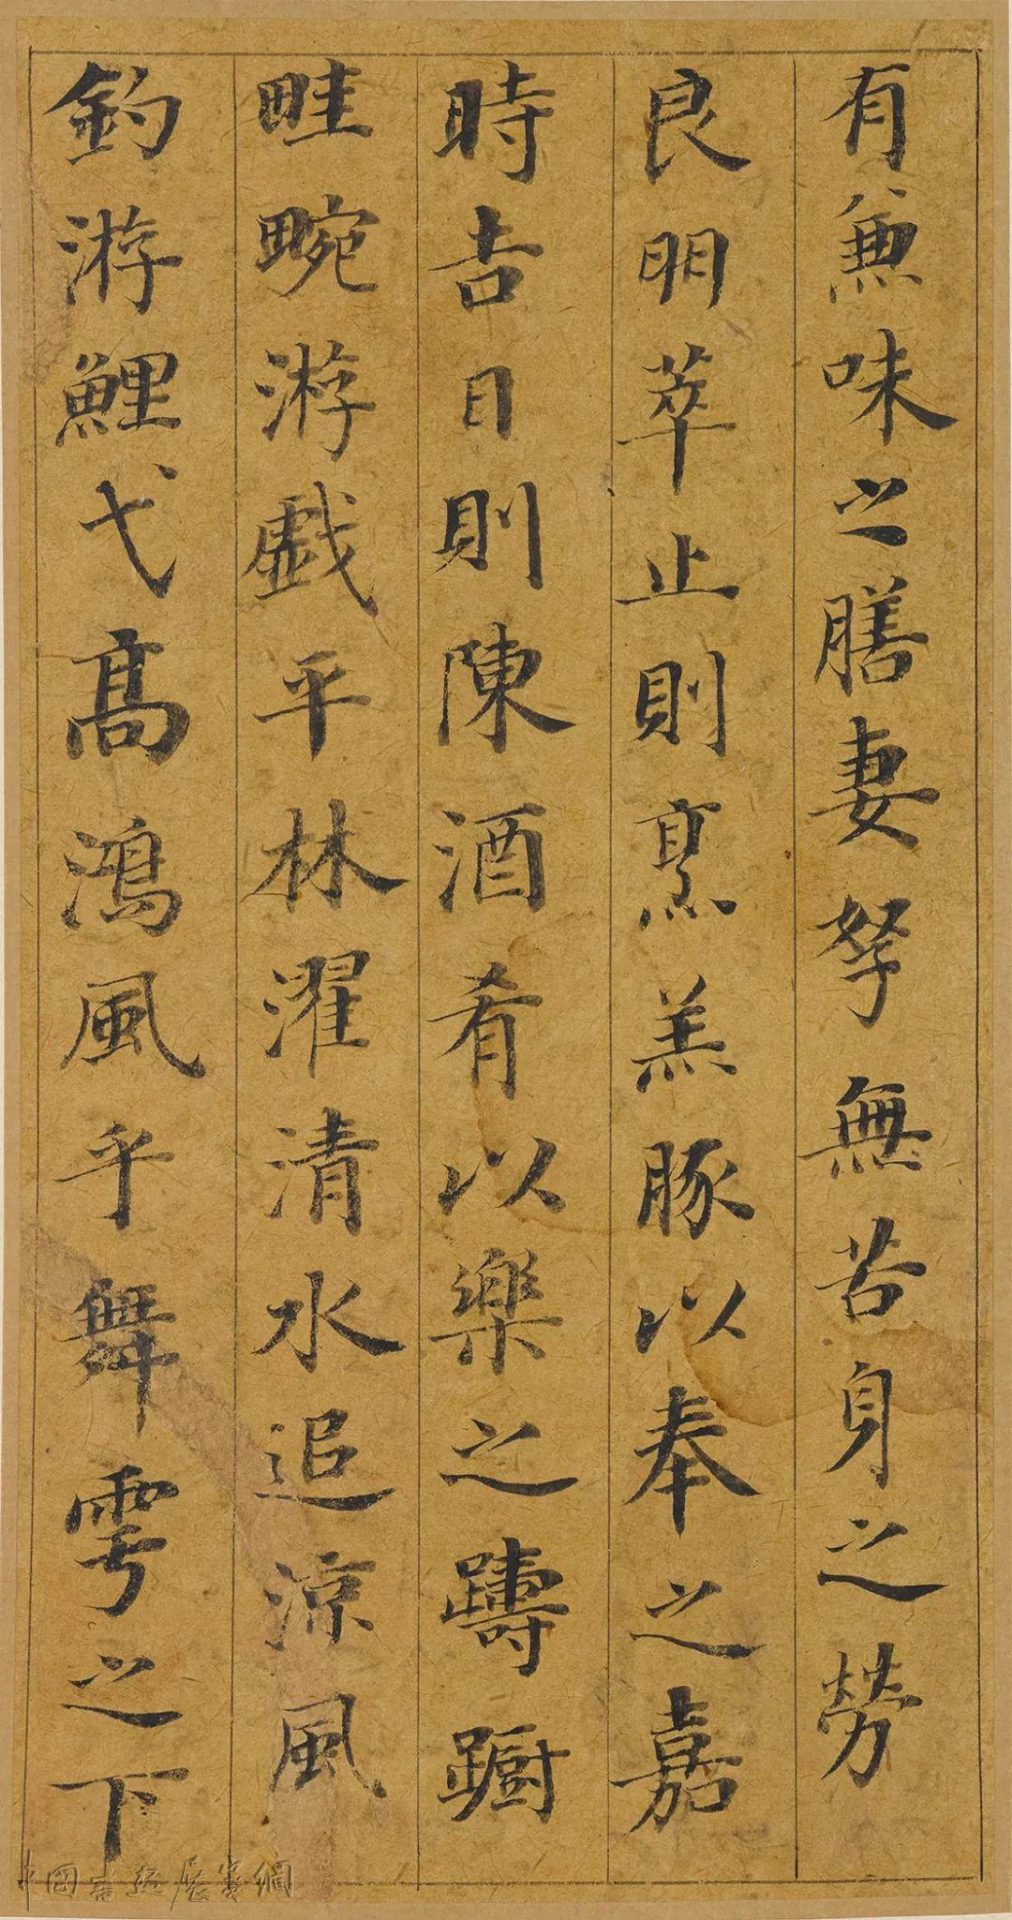 有兼味之膳妻孥無苦身之勞
良朙萃止則烹羔豚以奉之嘉
時吉日則陳酒肴以樂之躊躕
畦畹游戲平林濯清水追涼風
釣游鯉弋高鴻風乎舞雩之下
中国書法展賽網